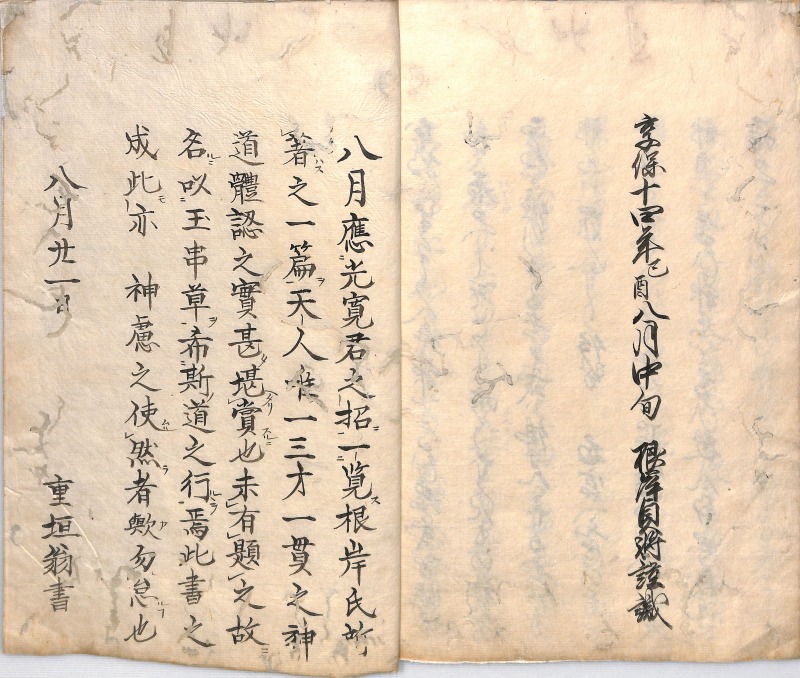 享保十四年己酉八月中旬 根岸貞将謹識
八月應光寛君之招一覧根岸氏所
著之一篇天人唯一三才一貫之神
道體認之實甚堪賞也未有題之故
名以玉串草希斯道之行焉此書之
成此亦 神慮之使然者歟勿怠也
八月廿一日
重垣翁書